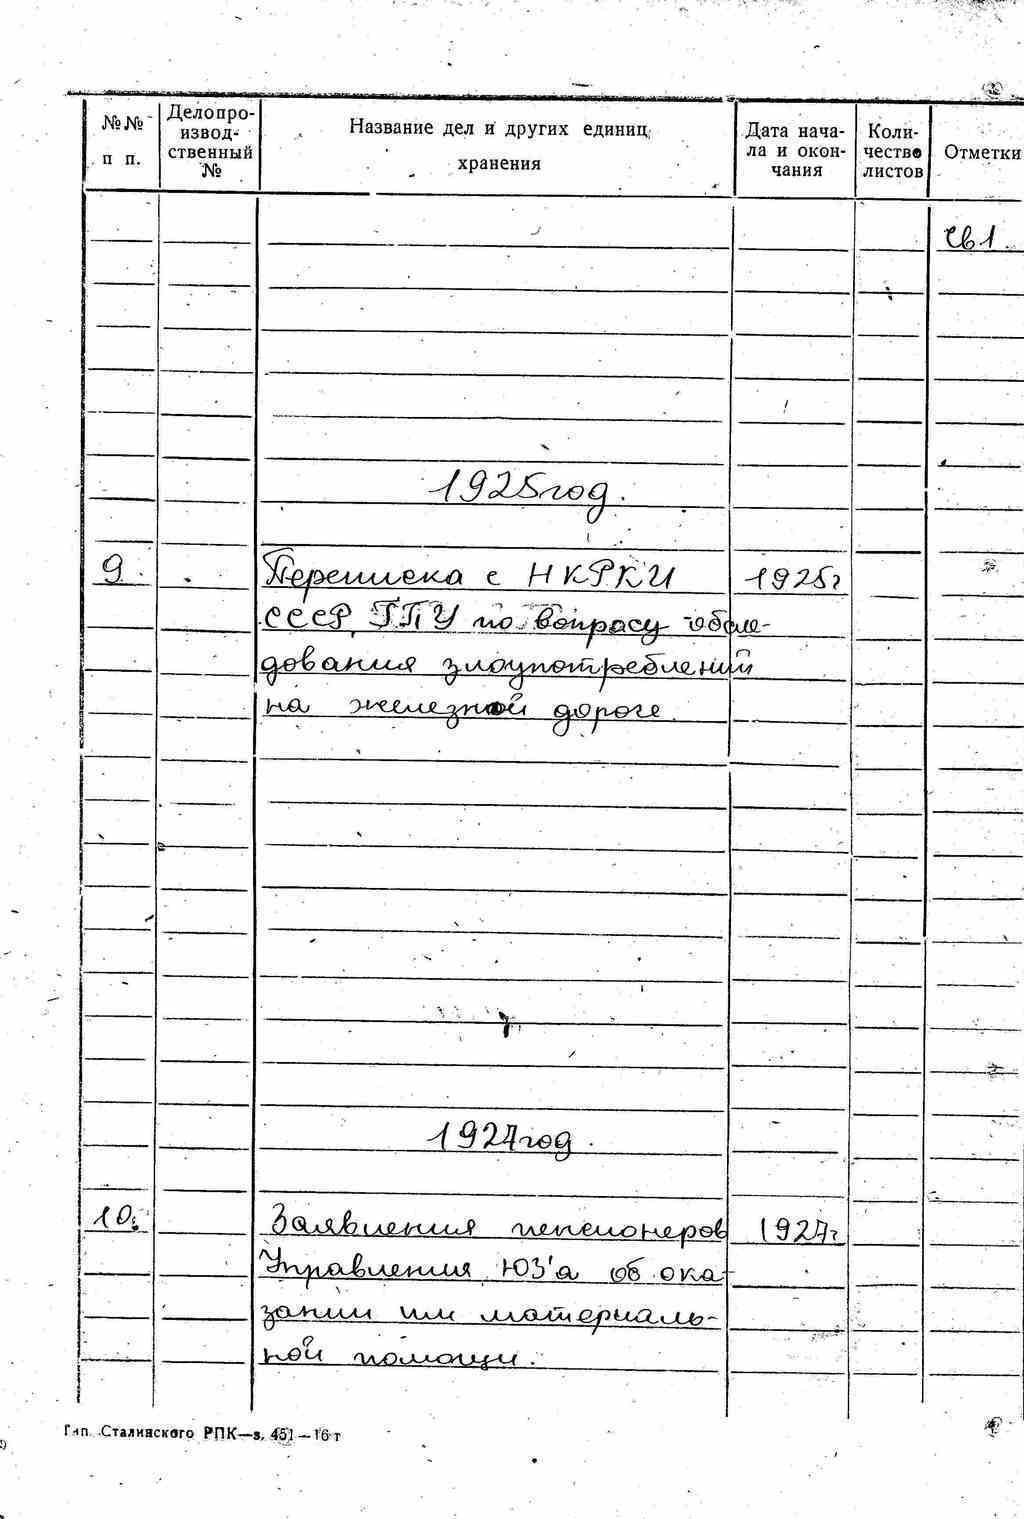 №№ п п.
Делопро-
извод-
ственный
№
Название дел и других единиц
хранения
Дата нача-
ла и окон-
чания
Коли-
чество
листов
Отметки
св 1
1925 год.
9. Переписка с НКРКИ 1925г
СССР, ГПУ по вопросу обсле-
дования злоупотреблений
на железной дороге
1927 год.
10. Заявления пенсионеров 1927г
Управления ЮЗ'а об ока-
зании им материаль-
ной помощи.
Тип. Сталинского РПК—з. 451—16 т